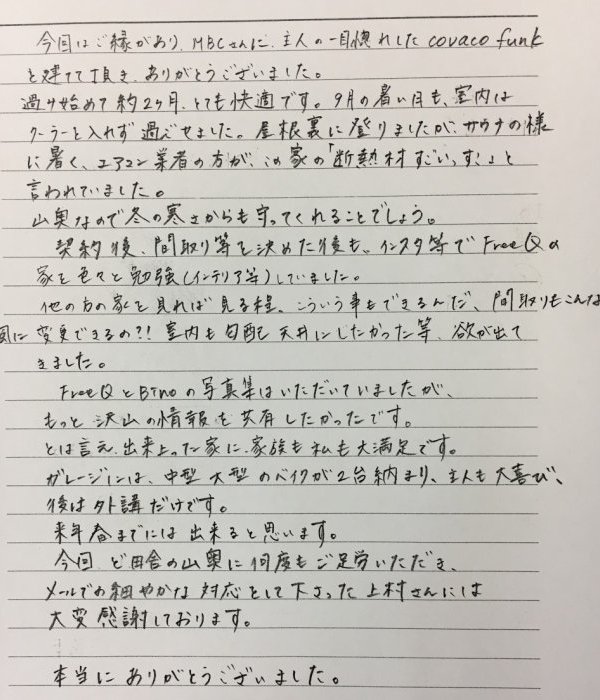 今回はご縁があり、MBCさんに、主人の一目惚れした covaco funk
を建てて頂き、ありがとうございました。
過ケ始めて約2ヶ月、とても快適です。9月の暑い日も、室内は
クーラーを入れず過ごせました。屋根裏に登りましたが、サウナの様
に暑く、エアコン業者の方が、この家の「断熱材すごいっす!」と
言われていました。
山奥なので冬の寒さからも守ってくれることでしょう。
契約後、間取り等を決めた後も、インスタ等でFreeQの
家を色々と勉強(インテリア等)していました。
他の方の家を見れば見る程、こういう事もできるんだ、間取りもこんな
風に変更できるの?!室内も勾配天井にしたかった等、欲が出て
きました。
FreeQとBinoの写真集はいただいていましたが、
もっと沢山の情報を共有したかったです。
とは言え、出来上った家に、家族も私も大満足です。
ガレージには、中型大型のバイクが2台納まり、主人も大喜び、
後は外講だけです。
来年春までには出来ると思います。
今回、ど田舎の山奥に何度もご足労いただき、
メールでの細やかな対応をして下さった上村さんには
大変感謝しております。
本当にありがとうございました。